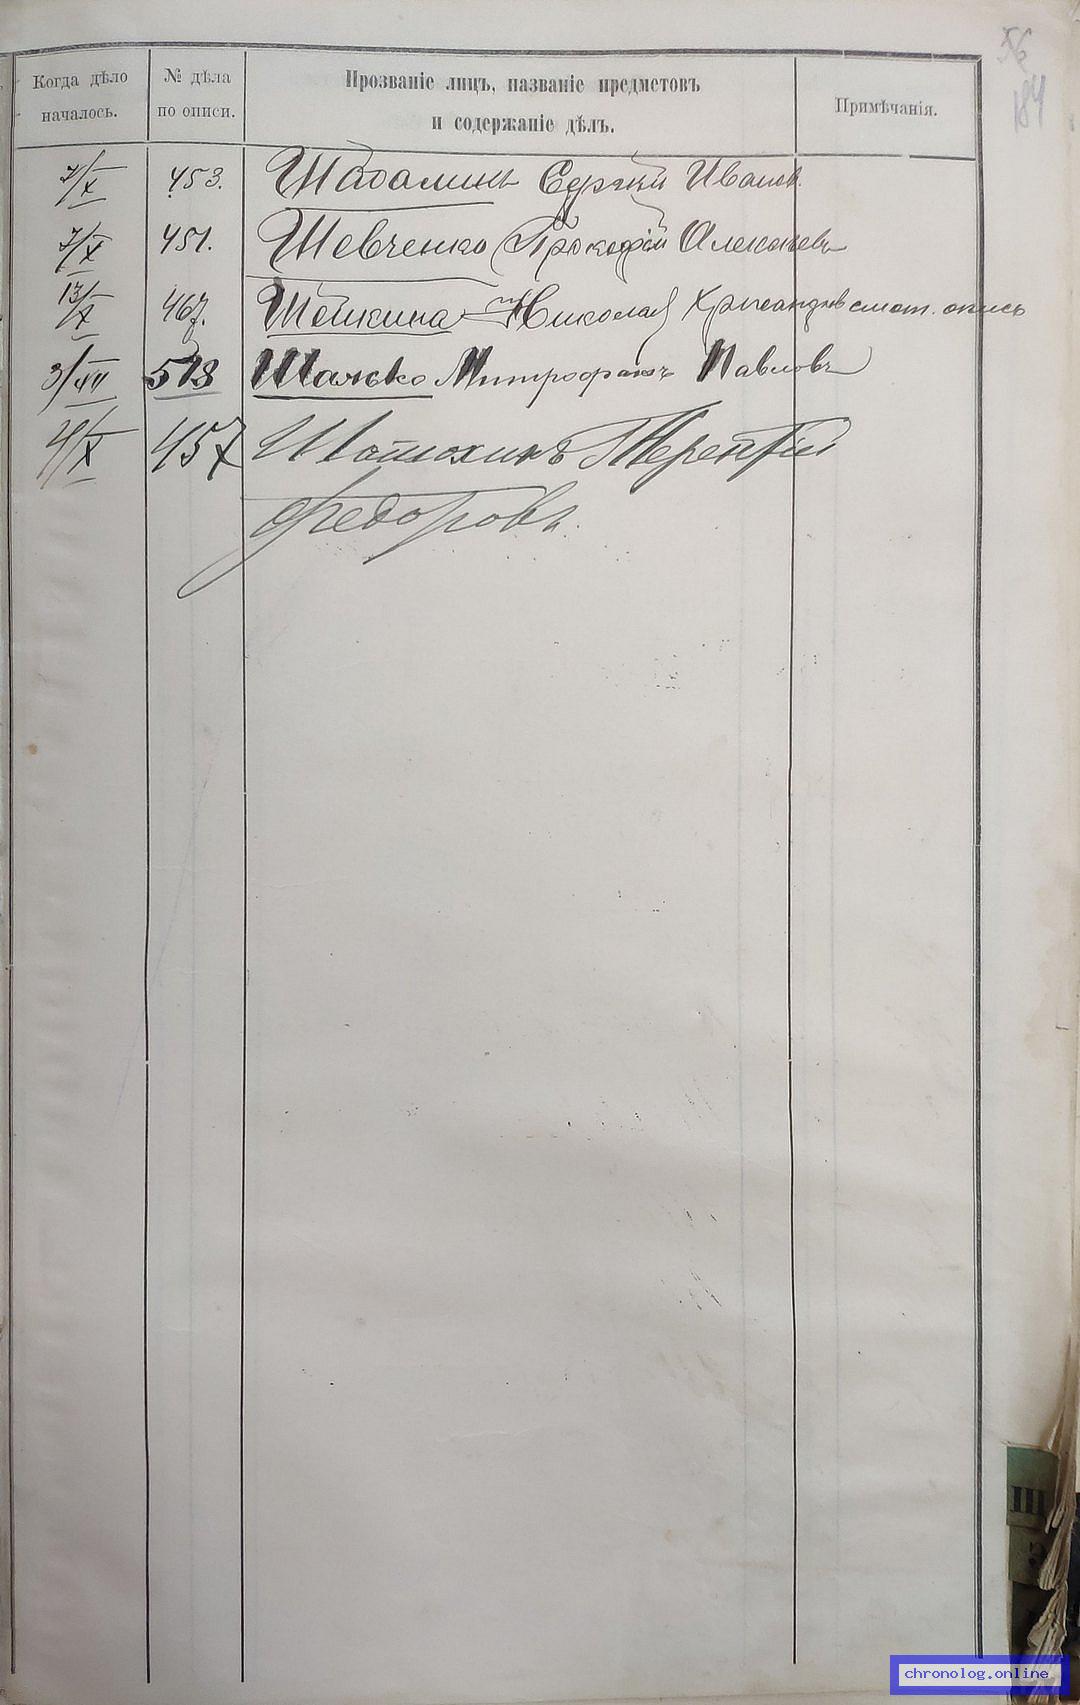 56
184
Когда дѣло началось.
№ дѣла по описи.
Прозваніе лицъ, названіе предметовъ и содержаніе дѣлъ.
Примѣчанія.
7/X 453. Шабалинъ Сергѣй Иванов.
7/X 451. Шевченко Прокофій Алексѣевъ
13/X 467. Шейкина Николая смот. опись
3/ 518 Шалько Митрофанъ Павловъ
4/X 457 Шатохинъ Терентій
Федоровъ.
Ш
chronolog.online